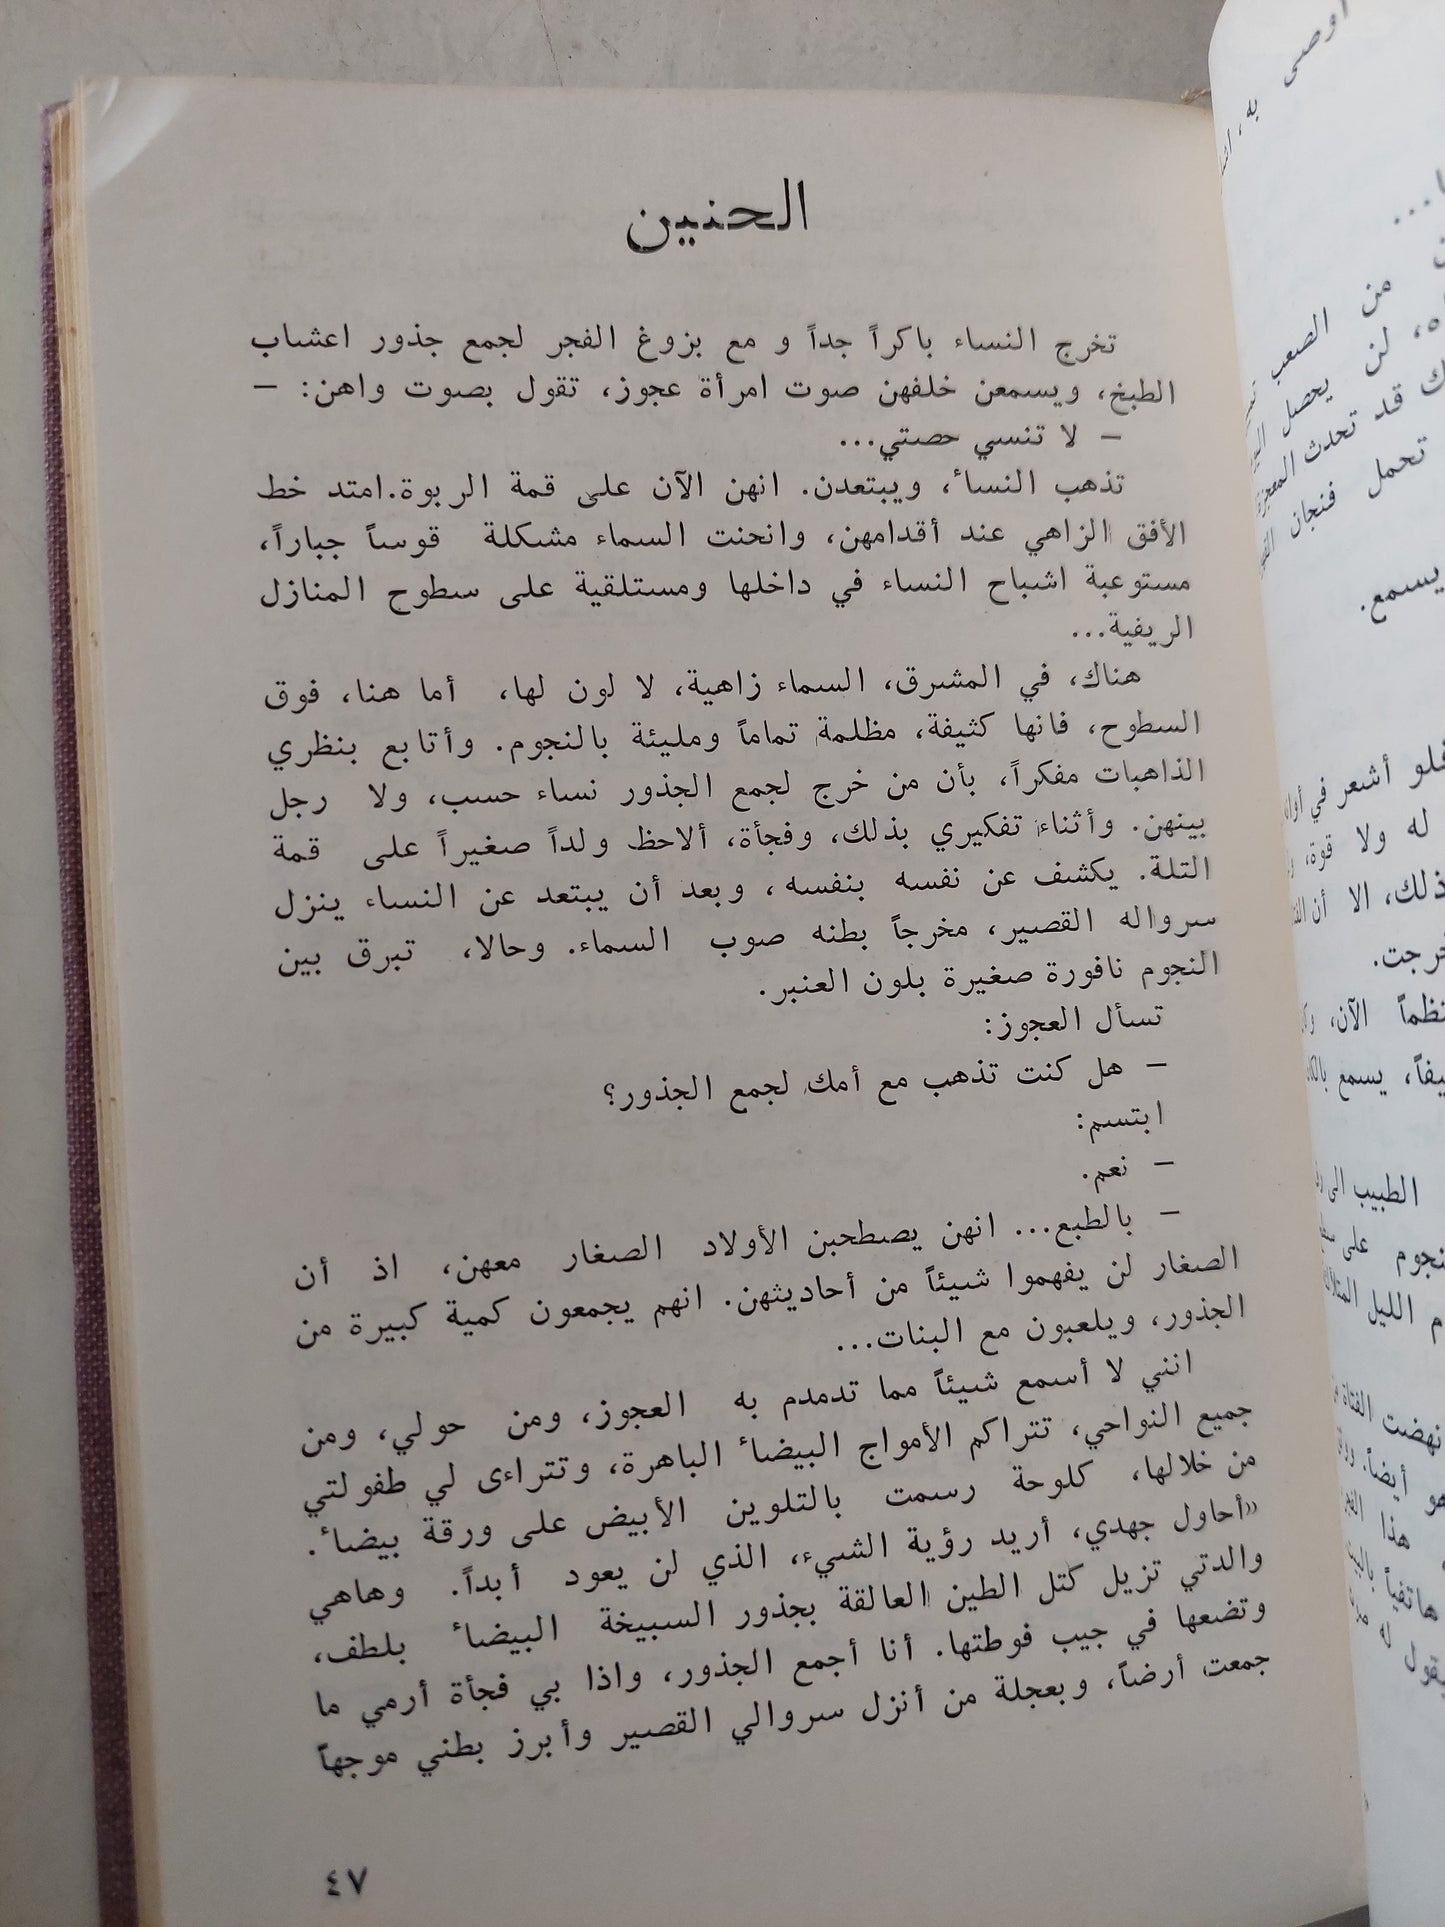 الحنين
تخرج النساء باكراً جداً و مع بزوغ الفجر لجمع جذور اعشاب
الطبخ، ويسمعن خلفهن صوت امرأة عجوز، تقول بصوت واهن: –
– لا تنسي حصتي...
تذهب النسأ، ويبتعدن. انهن الآن على قمة الربوة.امتد خط
الأفق الزاهي عند أقدامهن، وانحنت السماء مشكلة قوساً جباراً،
مستوعبة اشباح النساء في داخلها ومستلقية على سطوح المنازل
الريفية...
هناك، في المشرق، السماء زاهية، لا لون لها، أما هنا، فوق
السطوح، فانها كثيفة، مظلمة تماماً ومليئة بالنجوم. وأتابع بنظري
الذاهبات مفكراً، بأن من خرج لجمع الجذور نساء حسب، ولا رجل
بينهن. وأثناء تفكيري بذلك، وفجأة، ألاحظ ولداً صغيراً على قمة
التلة. يكشف عن نفسه بنفسه، وبعد أن يبتعد عن النساء ينزل
سرواله القصير، مخرجاً بطنه صوب السماء. وحالا، تبرق بين
النجوم نافورة صغيرة بلون العنبر.
تسأل العجوز:
– هل كنت تذهب مع أمك لجمع الجذور؟
ابتسم:
– نعم.
– بالطبع... انهن يصطحبن الأولاد الصغار معهن، اذ أن
الصغار لن يفهموا شيئاً من أحاديثهن. انهم يجمعون كمية كبيرة من
الجذور، ويلعبون مع البنات...
انني لا أسمع شيئاً مما تدمدم به العجوز، ومن حولي، ومن
جميع النواحي، تتراكم الأمواج البيضأ الباهرة، وتتراءى لي طفولتي
من خلالها، كلوحة رسمت بالتلوين الأبيض على ورقة بيضأ.
«أحاول جهدي، أريد رؤية الشيء، الذي لن يعود أبداً. وهاهي
والدتي تزيل كتل الطين العالقة بجذور السبيخة البيضأ بلطف،
وتضعها في جيب فوطتها. أنا أجمع الجذور، واذا بي فجأة أرمي ما
جمعت أرضاً، وبعجلة من أنزل سروالي القصير وأبرز بطني موجهاً
٤٧
أوصى
به،
من الصعب
لن يحصل
قد تحدث المعجزة
تحمل فنجان
يسمع.
فلو أشعر في
له ولا قوة،
ذلك، الا أن
الآن،
يسمع
الطبيب الى
على
الليل
نهضت الفتاة
أيضاً.
هذا
هاتفياً
له